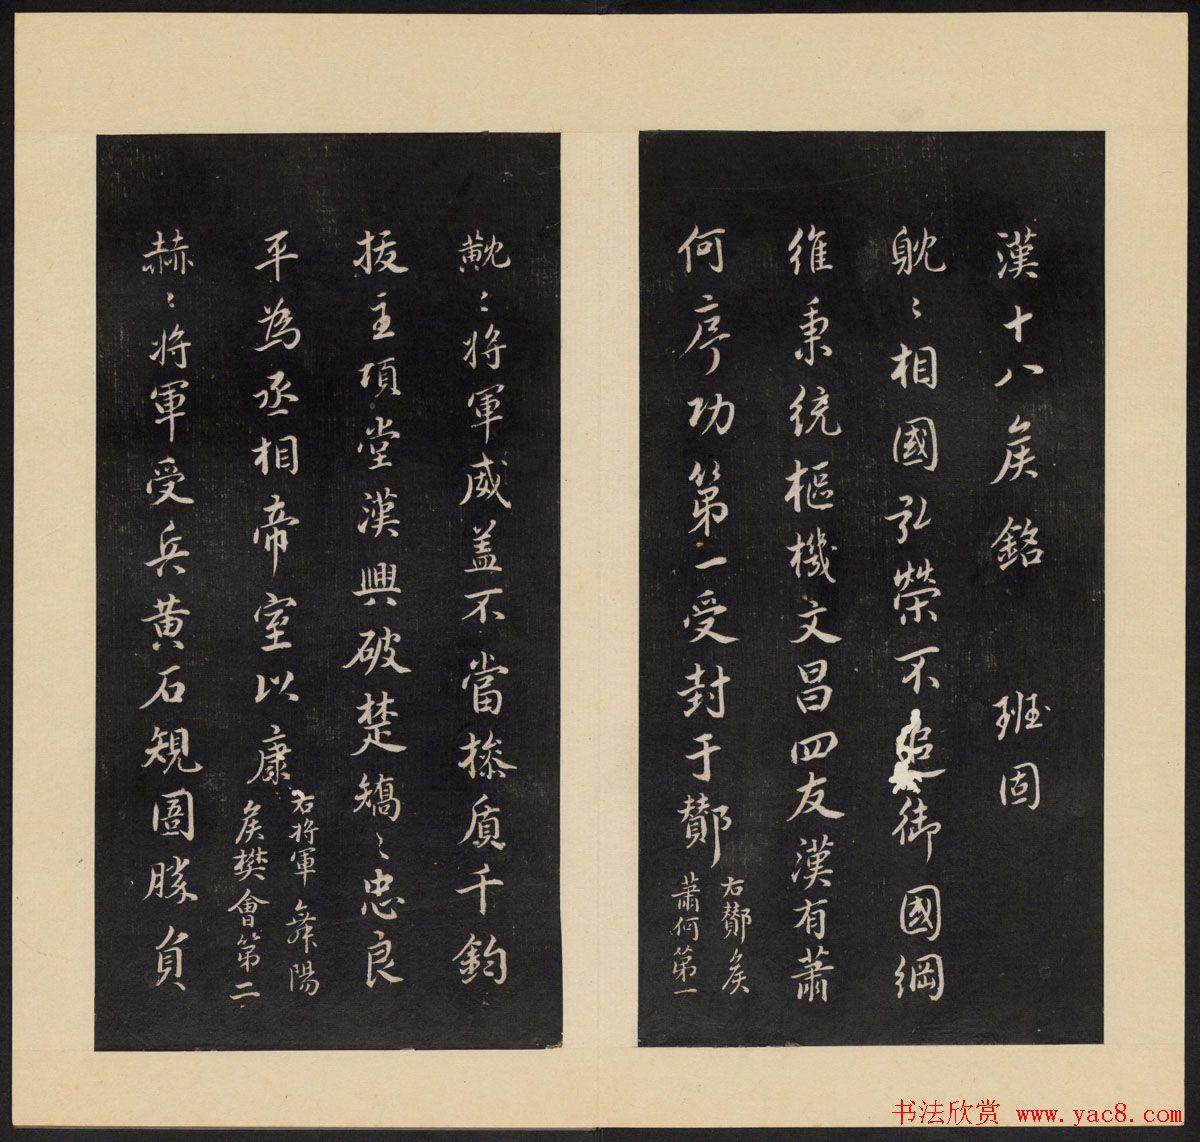 漢十八矦銘 班固
躭〻相國弘榮不追御國綱
維秉統樞機文昌四友漢有蕭
何序功第一受封于酇
右酇矦
蕭何第一
黕〻將軍威盖不當摻盾千鈞
拔主項堂漢興破楚矯〻忠良
平為丞相帝室以康
右將軍舞陽
矦樊會第二
赫〻將軍受兵黄石規圖勝負
书法欣赏 www.yac8.com